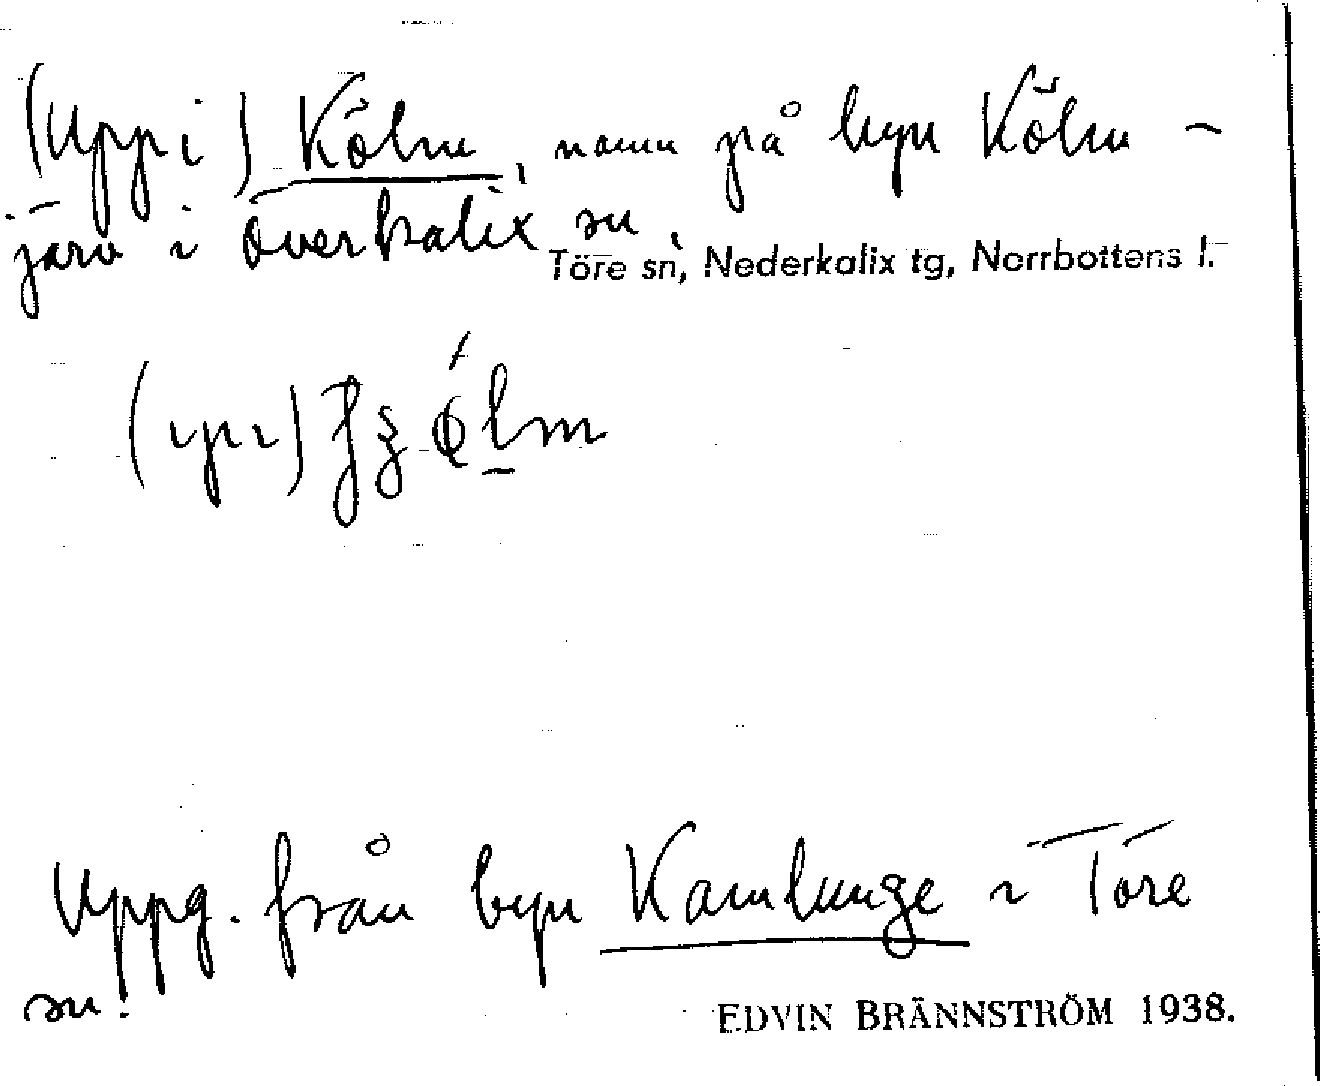 (Uppi) Kölm, namn på byn Kölm-
järv i Överkalix sn.
Töre sn, Nederkalix tg, Norrbottens l.
Uppg. från byn Kamlunge i Töre
sn.
EDVIN BRÄNNSTRÖM 1938.